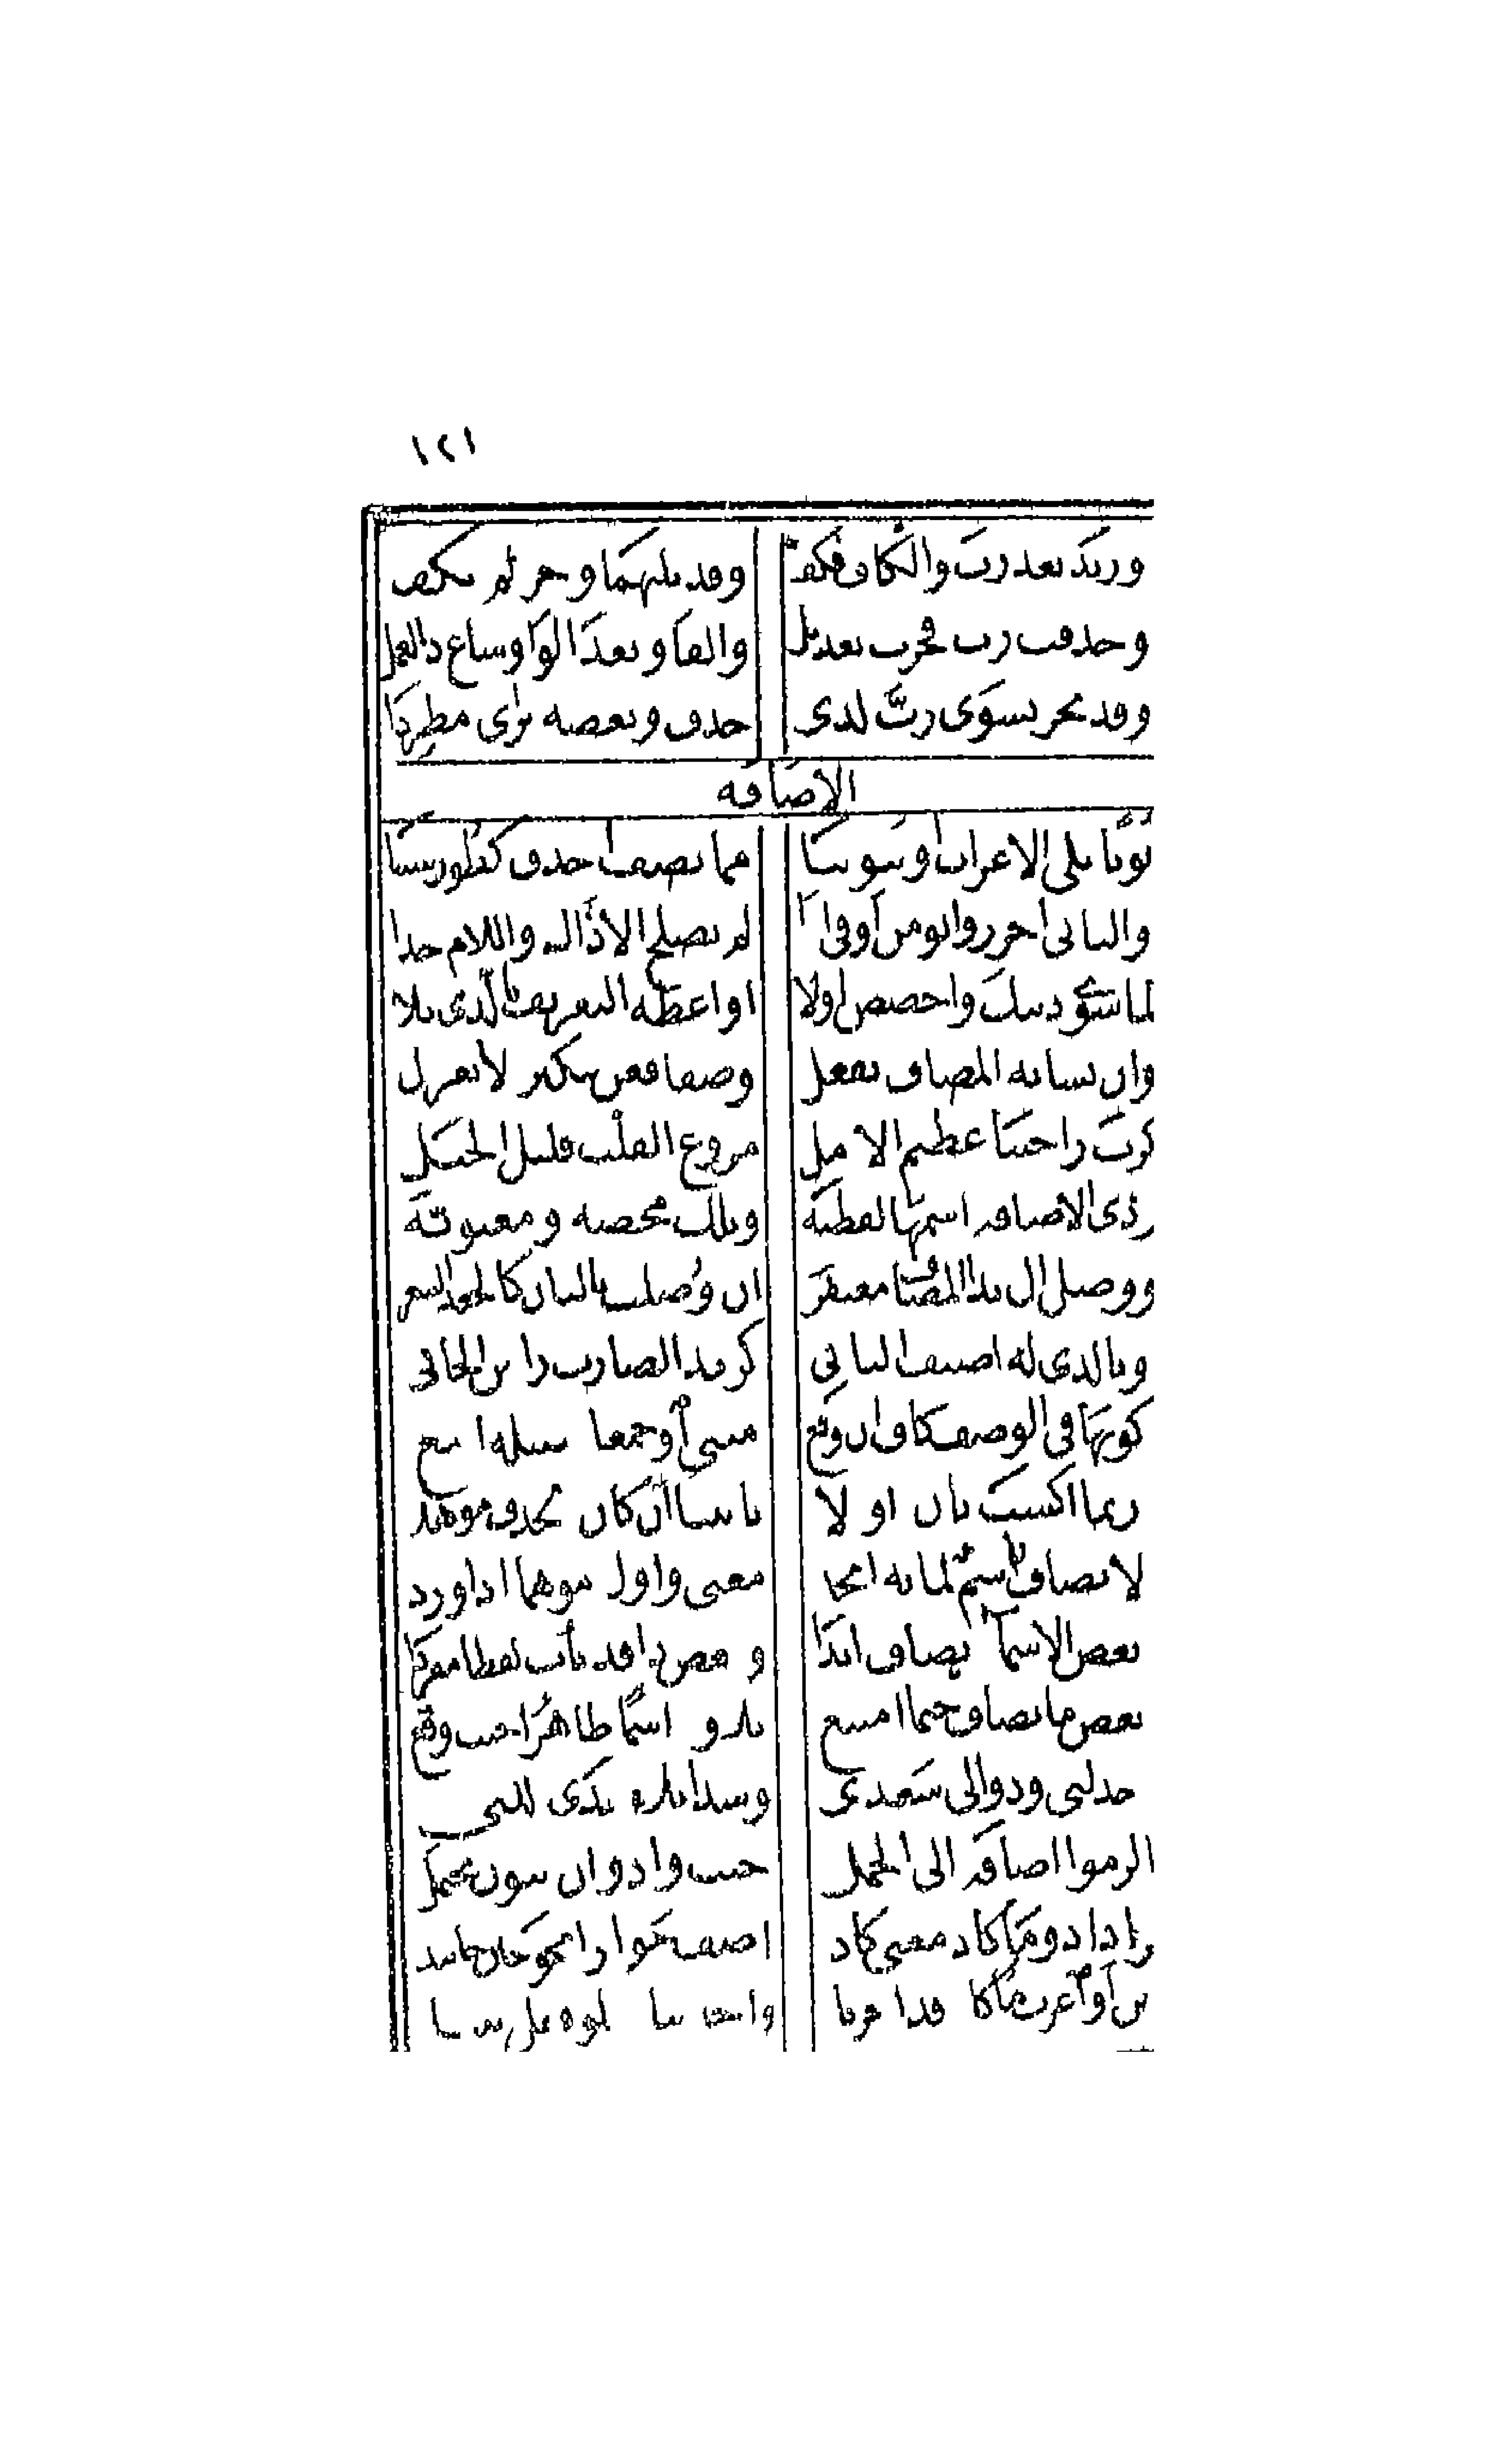 ١٢١
وزيد بعد رب والكاف فكف وقد يليهما وجر لم يكف
وحذفت رب فجرت بعد بل والفا وبعد الواو شاع ذا العمل
وقد يجر بسوى رب لدى حذف وبعضه يرى مطردا
الإضافة
نونا تلي الاعراب او تنوينا مما تضيف احذف كطور سينا
والثاني اجرر وانو من او في اذا لم يصلح الا ذاك واللام خذا
لما سوى ذينك واخصص اولا او اعطه التعريف بالذي تلا
وان يشابه المضاف يفعل وصفا فعن تنكيره لا يعزل
كرب راجينا عظيم الامل مروع القلب قليل الحيل
وذي الاضافة اسمها لفظية وتلك محضة ومعنوية
ووصل ال بذا المضاف مغتفر ان وصلت بالثان كالجعد الشعر
وبالذي له اضيف الثاني كزيد الضارب راس الجاني
كونها في الوصف كاف ان وقع مثنى او جمعا سبيله اتبع
ربما اكسب ثان اولا تانيثا ان كان لحذف موهلا
لا يضاف اسم لما به اتحد معنى واول موهما اذا ورد
بعض الاسماء يضاف ابدا وبعض ذا قد يات لفظا مفردا
بعض ما يضاف حتما امتنع ايلاوه اسما ظاهرا حيث وقع
حد لبى ودوالي سعدي وشذ ايلاء يدي للبي
الزموا اضافة الى الجمل حيث واذ وان ينون يحتمل
راد اذ وما كاذ معنى كاذ اضف جوازا نحو حين جا نبذ
بن او اعرب ما كاذ قد اجريا واختر بنا متلو فعل بنيا